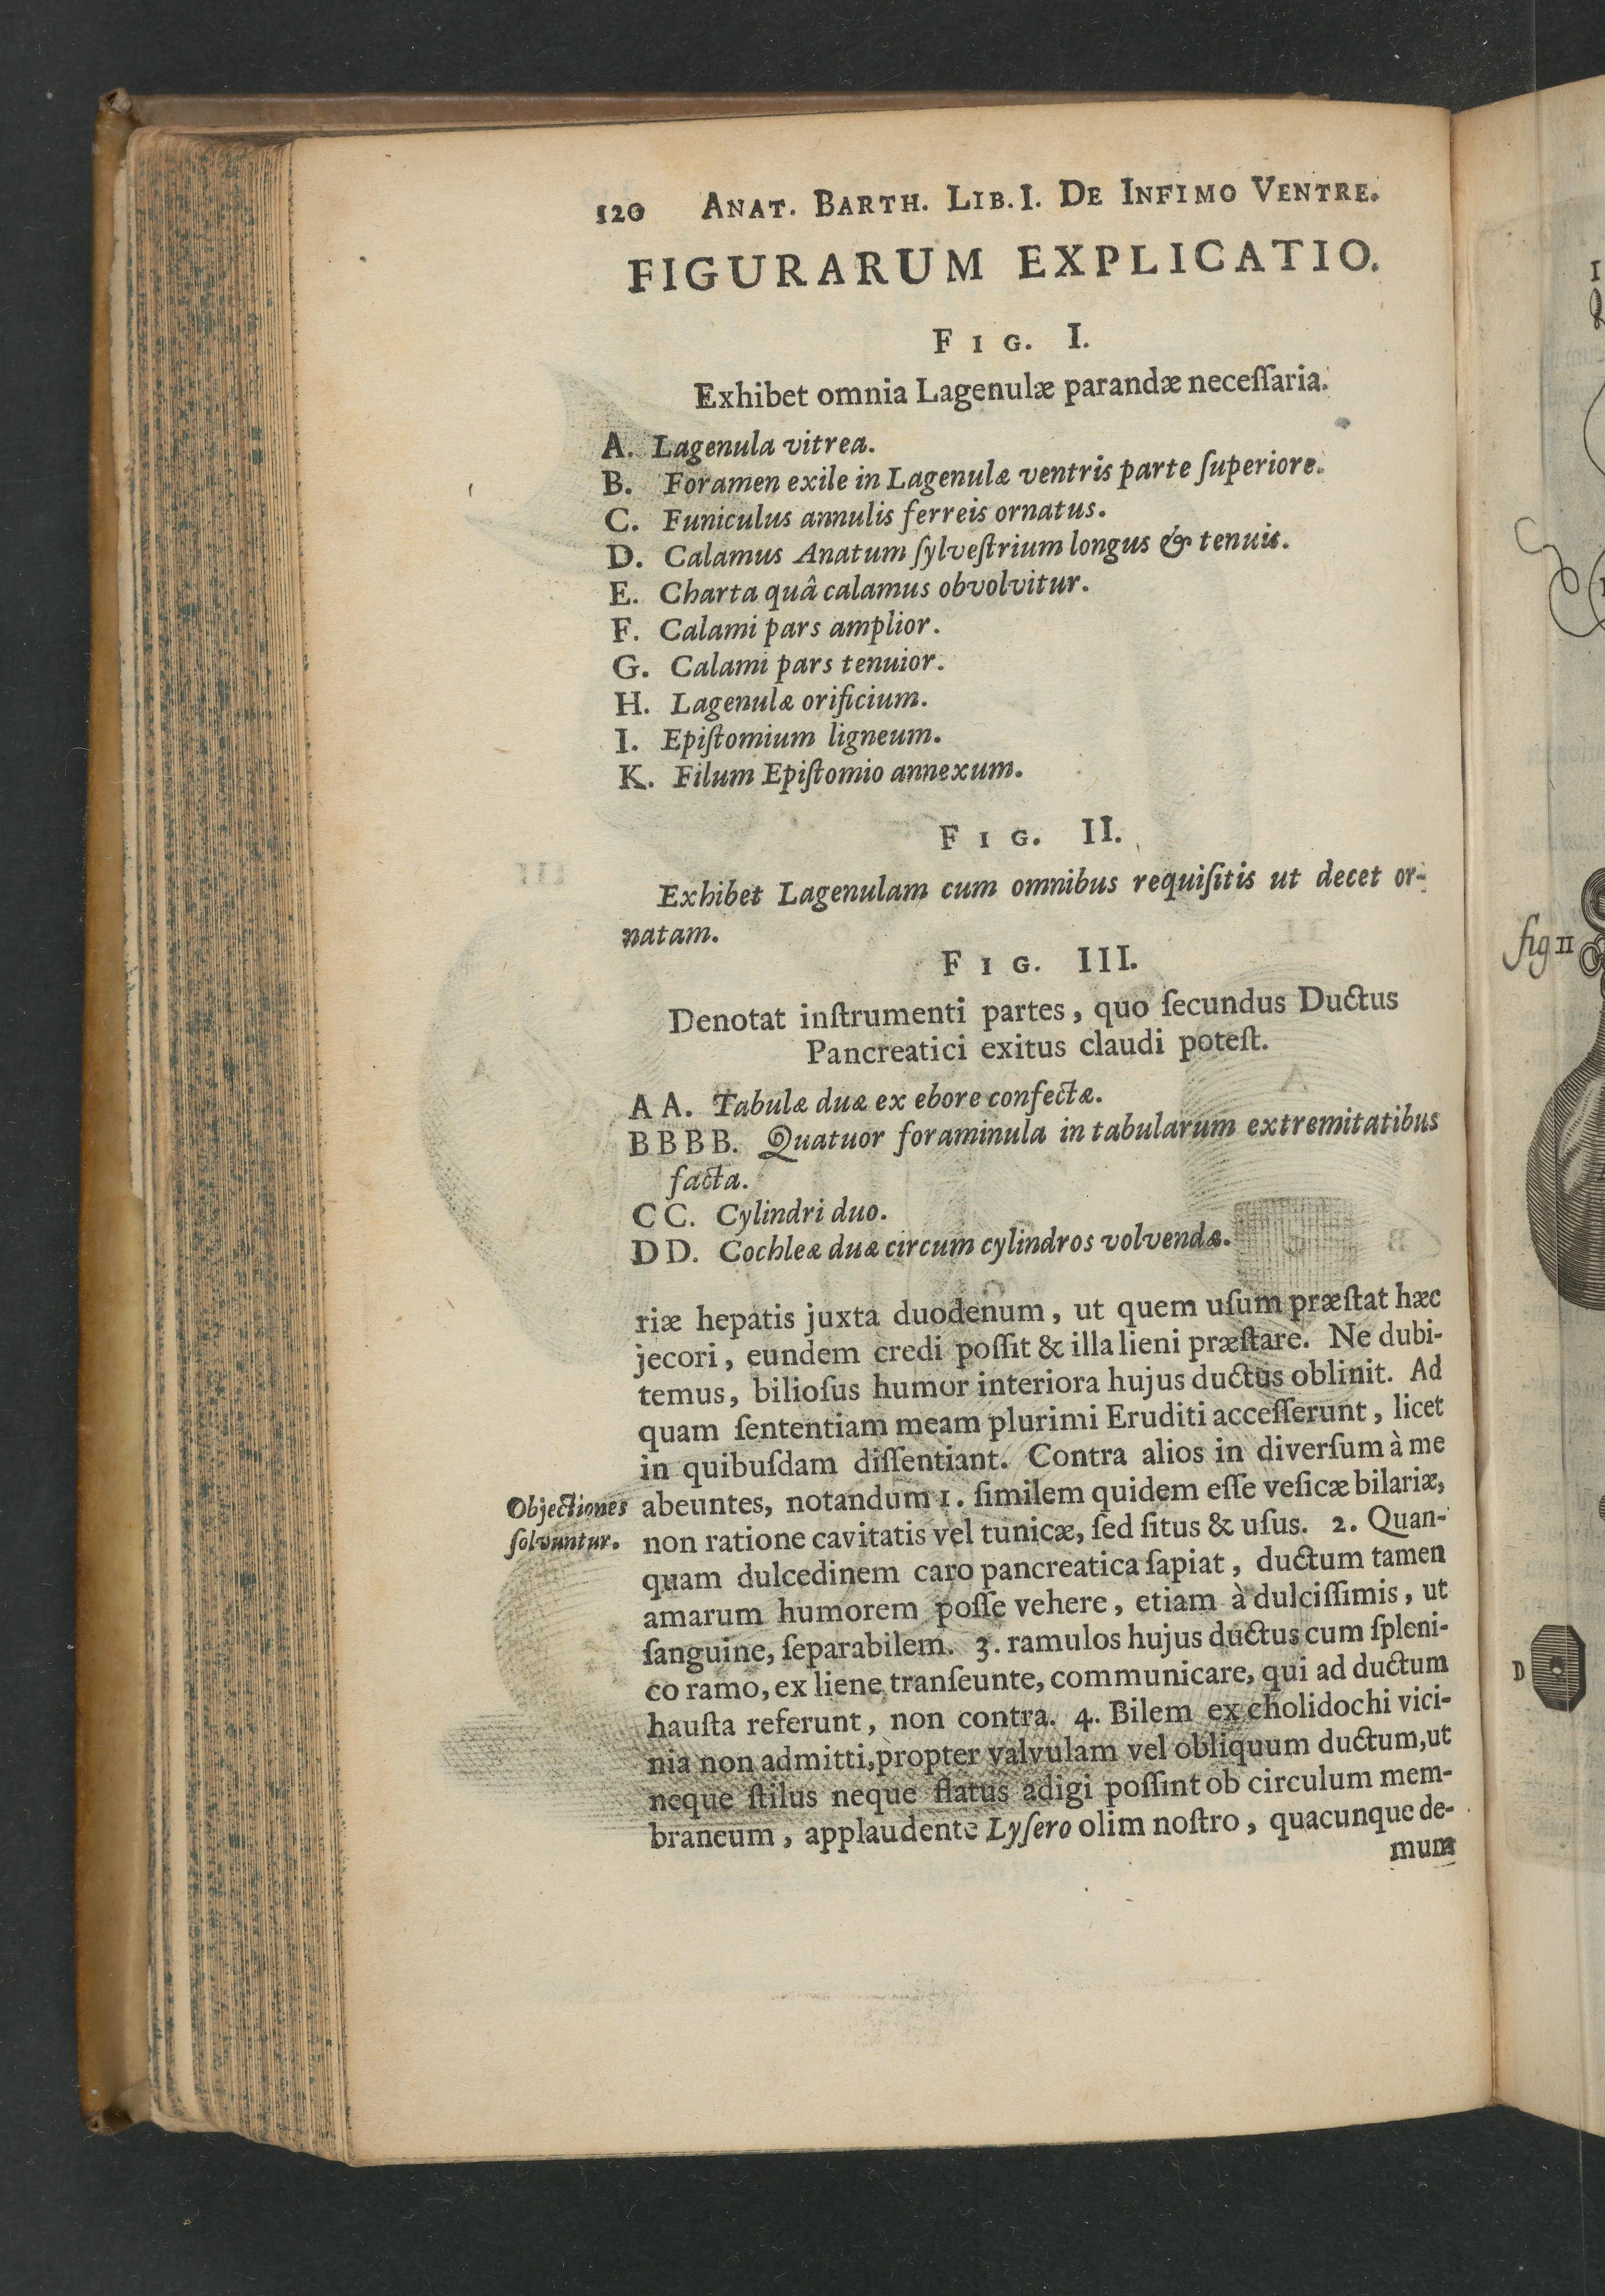 120 ANAT. BARTH. LIB. I. DE INFIMO VENTRE.
FIGURARUM EXPLICATIO.
FIG. I.
Exhibet omnia Lagenulæ parandæ neceſſaria.
A. Lagenula vitrea.
B. Foramen exile in Lagenulæ ventris parte ſuperiore.
C. Funiculus annulis ferreis ornatus.
D. Calamus Anatum ſylveſtrium longus & tenuis.
E. Charta quâ calamus obvolvitur.
F. Calami pars amplior.
G. Calami pars tenuior.
H. Lagenulæ orificium.
I. Epiſtomium ligneum.
K. Filum Epiſtomio annexum.
FIG. II.
Exhibet Lagenulam cum omnibus requiſitis ut decet or-
natam.
FIG. III.
Denotat inſtrumenti partes, quo ſecundus Ductus
Pancreatici exitus claudi poteſt.
A A. Tabulæ duæ ex ebore confectæ.
B B B B. Quatuor foraminula in tabularum extremitatibus
facta.
C C. Cylindri duo.
D D. Cochleæ duæ circum cylindros volvendæ.
riæ hepatis juxta duodenum, ut quem uſum præſtat hæc
jecori, eundem credi poſſit & illa lieni præſtare. Ne dubi-
temus, bilioſus humor interiora hujus ductus oblinit. Ad
quam ſententiam meam plurimi Eruditi acceſſerunt, licet
in quibuſdam diſſentiant. Contra alios in diverſum à me
Objectiones abeuntes, notandum 1. ſimilem quidem eſſe veſicæ bilariæ,
ſolvuntur. non ratione cavitatis vel tunicæ, ſed ſitus & uſus. 2. Quan-
quam dulcedinem caro pancreatica ſapiat, ductum tamen
amarum humorem poſſe vehere, etiam à dulciſſimis, ut
ſanguine, ſeparabilem. 3. ramulos hujus ductus cum ſpleni-
co ramo, ex liene tranſeunte, communicare, qui ad ductum
hauſta referunt, non contra. 4. Bilem ex cholidochi vici-
nia non admitti, propter valvulam vel obliquum ductum, ut
neque ſtilus neque flatus adigi poſſint ob circulum mem-
braneum, applaudente Lyſero olim noſtro, quacunque de-
mum
fig II
D